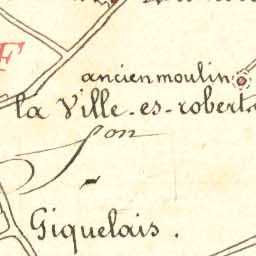 F
ancien moulin
la Ville-es-robert
son
Giquelais.